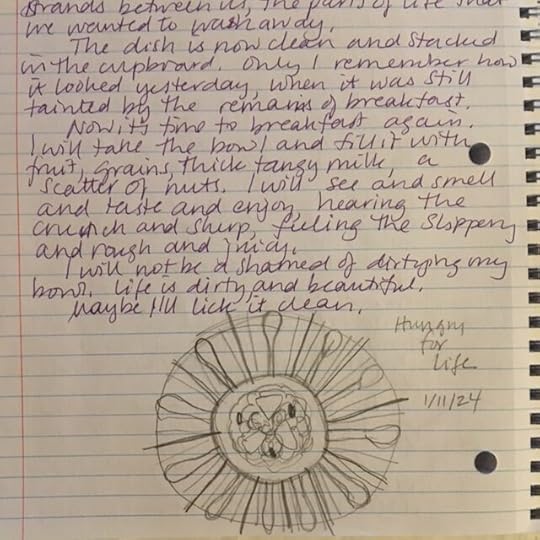 brands between us, the parts of life that
we wanted to wash away.
The dish is now clean and stacked
in the cupboard. Only I remember how
it looked yesterday, when it was still
tainted by the remains of breakfast.
Now it's time to breakfast again.
I will take the bowl and fill it with
fruit, grains, thick tangy milk, a
scatter of nuts. I will see and smell
and taste and enjoy, hearing the
crunch and slurp, feeling the slippery
and rough and juicy.
I will not be ashamed of dirtying my
bowl. Life is dirty and beautiful.
Maybe I'll lick it clean.
Hungry
for
Life
1/11/24